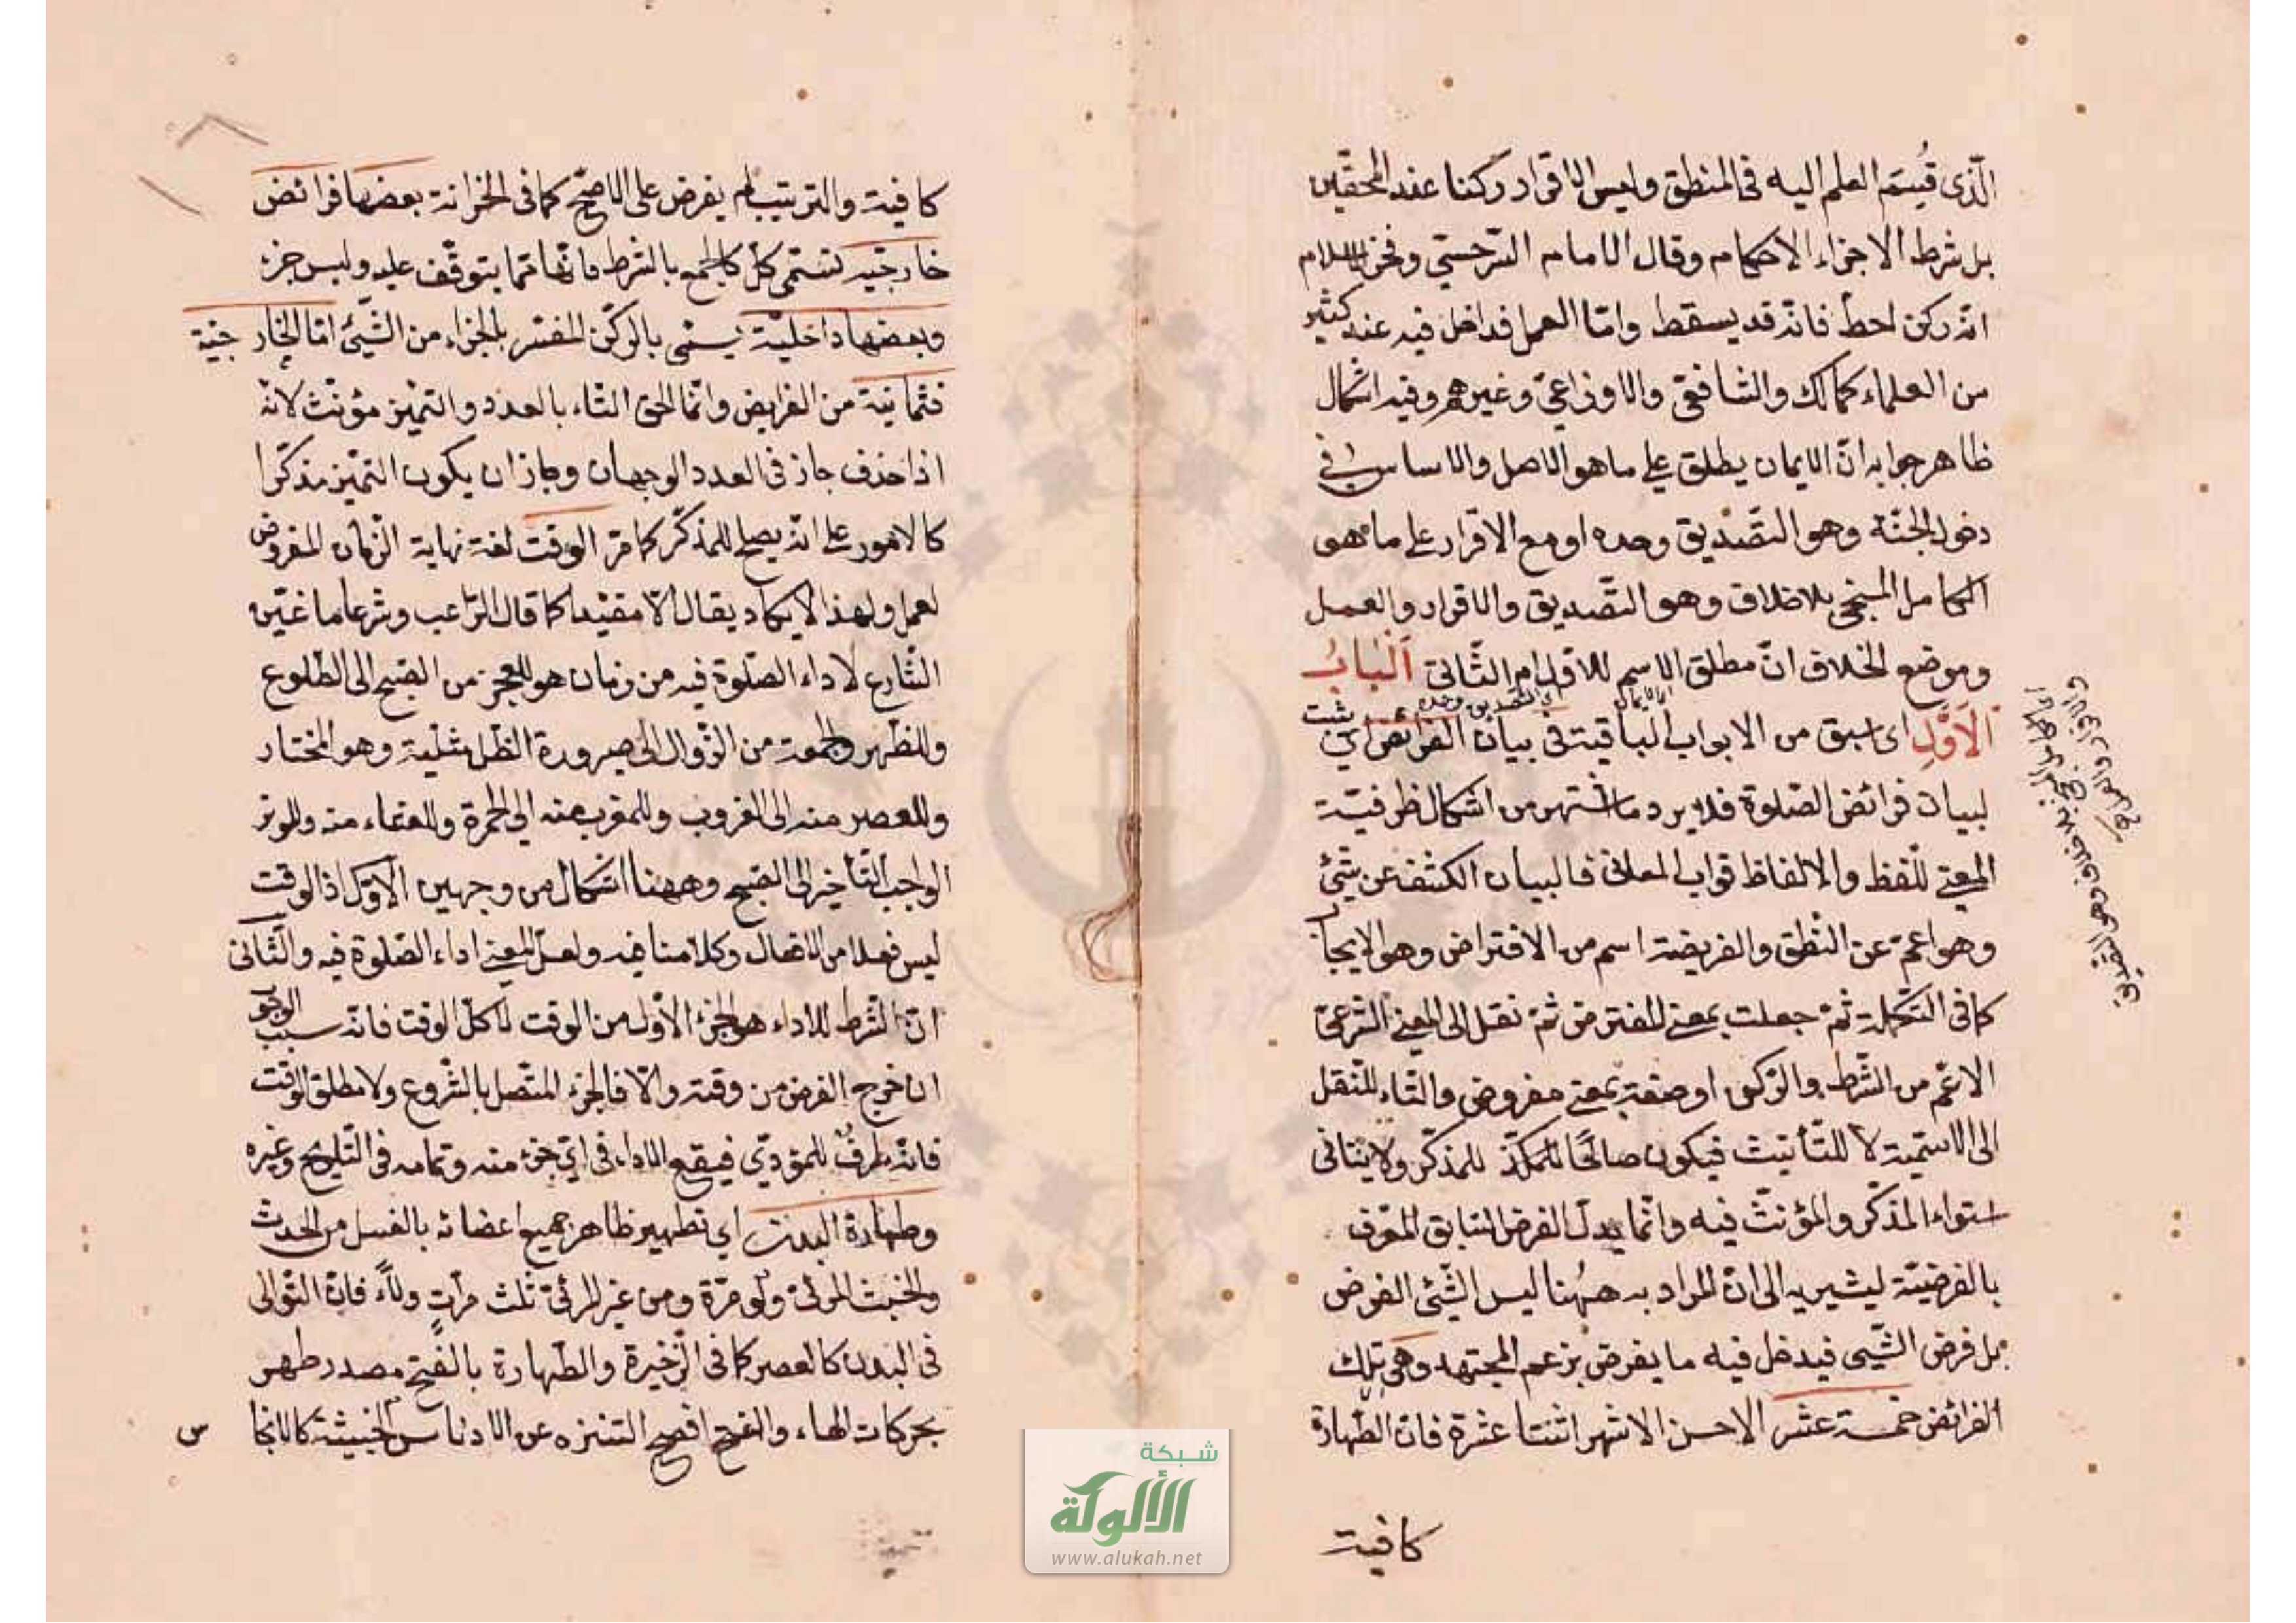 الّذى قُسِمَ العلم اليه فى المنطق وليس الاقرار ركنا عند المحقّقين
بل شرط الاجراء الاحكام وقال الامام السّرخسىّ وفخر الاسلام
انّه ركن احط فانّه قد يسقط وامّا العمل فداخل فيه عند كثير
من العلماء كمالك والشافعىّ والاوزاعىّ وغيرهم وفيه اشكال
ظاهر جوابه انّ الايمان يطلق على ما هو الاصل والاساس فى
دخول الجنّة وهو التّصديق وحده او مع الاقرار على ما هو
الكامل المنجى بلاخلاف وهو التّصديق والاقرار والعمل
وموضع الخلاف انّ مطلق الاسم للاوّل ام الثّانى اَلْبابُ
اى الايمان
اى التصديق وحده
الاَوّلِ اى اسبق من الابواب الباقية فى بيان الفرائض اى يثبت
لبيان فرائض الصّلوة فلا يرد ما اشتهر من اشكال ظرفيّة
المعنى للّفظ والالفاظ قوالب المعانى فالبيان الكشف عن شئ
وهو اعمّ عن النّطق والفريضة اسم من الافتراض وهو الايجاب
كما فى التّكملة ثمّ جعلت بمعنى المفترض ثمّ نقل الى المعنى الشّرعىّ
الاعمّ من الشّرط والرّكن او صفة بمعنى مفروض والتّاء للنّقل
الى الاسميّة لا للتّأنيث فيكون صالحًا للمذكّر ولا ينافى
استواء المذكّر والمؤنّث فيه وانّما بدّل الفرض السّابق المعرّف
بالفرضيّة ليشير به الى انّ المراد به ههُنا ليس الشّئ الفرض
بل فرض الشّيى فيدخل فيه ما يفرض بزعم المجتهد وهى تلك
الفرائض خمسة عشر الاحسن الاشهر اثنتا عشرة فانّ الطّهارة
كافية
او الكامل المنجى بلا خلاف وهو التصديق
والاقرار والعمل
كافية والترتيب لم يفرض على الاصحّ كما فى الخزانة بعضها فرائض
خارجيّة تسمّى كلّ كالجمع بالشرط فانّها ممّا يتوقّف عليه وليس جزء
وبعضها داخليّة يسمّى بالركن المفسّر بالجزاء من الشّيئ امّا الخارجيّة
فثمانية من الفرايض وانّما الحق التّاء بالعدد والتميّز مؤنّث لانّه
اذا حذف جاز فى العدد الوجهان وجاز ان يكون التميّز مذكّرا
كالامور على انّه يصلح للمذكّر كما مرّ الوقت لغة نهاية الزّمان المفروض
لعمل ولهذا لا يكاد يقال الّا مقيّدا كما قال الرّاغب وشرعا ما عيّن
الشّارع لاداء الصّلوة فيه من زمان هو للفجر من الصّبح الى الطّلوع
وللظّهر والجمعة من الزّوال الى صيرورة الظّل مثليه وهو المختار
وللعصر منه الى الغروب وللمغرب منه الى الحمرة وللعشاء منه وللوتر
الواجب التّأخير الى الصّبح وههنا اشكال من وجهين الاوّل اذ الوقت
ليس فعلا من الافعال وكلامنا فيه ولعلّ المعنى اداء الصّلوة فيه والثّانى
انّ الشّرط للاداء هو الجزء الاوّل من الوقت لا كلّ الوقت فانّه سبب الوجوب
ان خرج الفرض من وقته والّا فالجزء المتّصل بالشّروع ولا مطلق الوقت
فانّه ظرف للمؤدّى فيقع الاداء فى اىّ جزء منه وتمامه فى التّلويح وغيره
وطهارة البدن اى تطهير ظاهر جميع اعضائه بالغسل من الحدث
والخبث المرئىّ ولو مرّة ومن غير المرئىّ ثلث مرّات ولاًء فانّ التّوالى
فى البدن كالعصر كما فى الذّخيرة والطّهارة بالفتح مصدر طهر
بحركات الهاء والفتح افصح التنزه عن الادناس الخبيثة كالانجا
س
شبكة
الألوكة
www.alukah.net